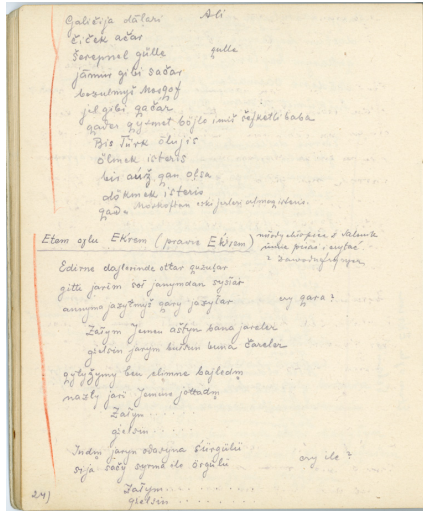 Galičija dālari Ali
čiček ačar
šerepnel gülle gulle
jāmur gibi sačar
bozulmyš Mosqof
jel gibi qačar
qader qysmet böjle imiš šefketli baba
Bis Türk ölujis
ölmek isteris
bis auž qan olsa
dökmek isteris
qadu Moskoftan eski jerleri almaq isteris.
Etem oglu Ekrem (prawie Ekŕem)
Edirne daglerinde ottar quzular
gitti jarim sol janymdan syzlar
annyma jazylmyš qary jazylar czy qara?
Zalym Jemen ačtyn bana jareler
gelsin jarym bulsun buna čareler
qylyǯymy ben elimne bajledm
nazly jari Jemine jolladm
Zalym . . . . .
gelsin . . . . .
Indm jaryn odasyna sürgülü
sija sačy syrma ile örgülü czy ile?
Zalym . . . . . . . .
gelsin . . . . . . . .
24)